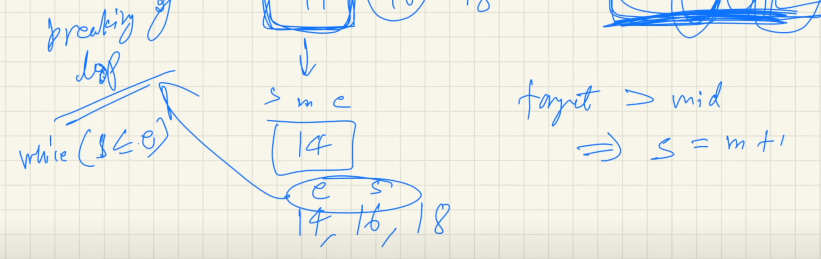 breaking of
loop
while (s ≤ e)
s m e
14
e s
14, 16, 18
target > mid
⇒ s = m + 1